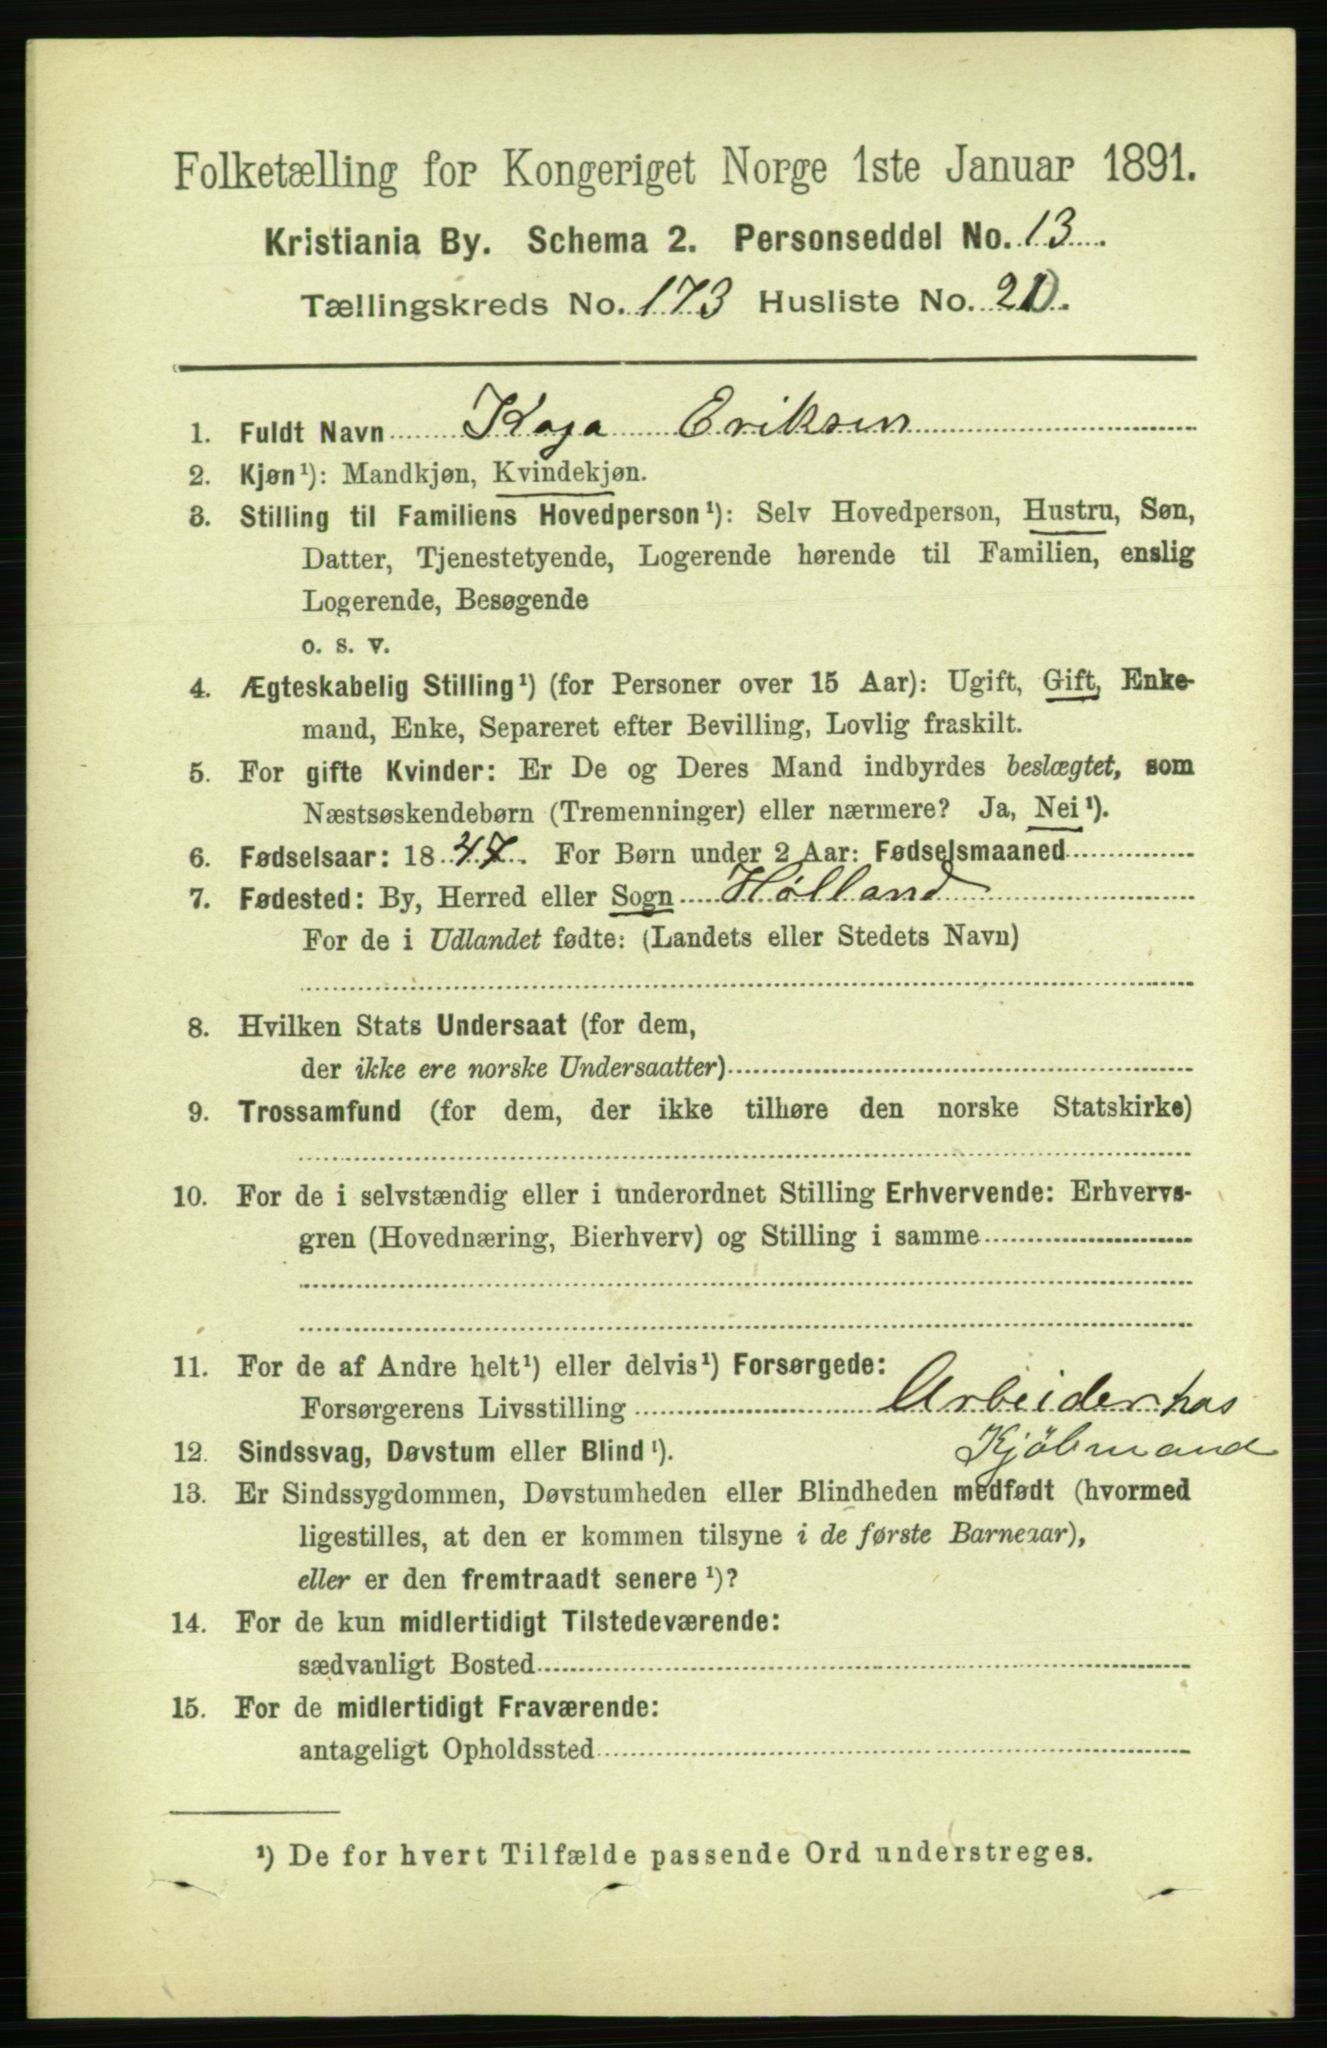 Folketælling for Kongeriget Norge 1ste Januar 1891.
Kristiania By. Schema 2. Personseddel No. 13.
Tællingskreds No. 173 Husliste No. 20.
1. Fuldt Navn Kaja Eriksen
2. Kjøn¹): Mandkjøn, Kvindekjøn.
3. Stilling til Familiens Hovedperson¹): Selv Hovedperson, Hustru, Søn,
Datter, Tjenestetyende, Logerende hørende til Familien, enslig
Logerende, Besøgende
o. s. v.
4. Ægteskabelig Stilling¹) (for Personer over 15 Aar): Ugift, Gift, Enke-
mand, Enke, Separeret efter Bevilling, Lovlig fraskilt.
5. For gifte Kvinder: Er De og Deres Mand indbyrdes beslægtet, som
Næstsøskendebørn (Tremenninger) eller nærmere? Ja, Nei¹).
6. Fødselsaar: 1847. For Børn under 2 Aar: Fødselsmaaned
7. Fødested: By, Herred eller Sogn Høland
For de i Udlandet fødte: (Landets eller Stedets Navn)
8. Hvilken Stats Undersaat (for dem,
der ikke ere norske Undersaatter)
9. Trossamfund (for dem, der ikke tilhøre den norske Statskirke)
10. For de i selvstændig eller i underordnet Stilling Erhvervende: Erhvervs-
gren (Hovednæring, Bierhverv) og Stilling i samme
11. For de af Andre helt¹) eller delvis¹) Forsørgede:
Forsørgerens Livsstilling Arbeider hos
Kjöbmand
12. Sindssvag, Døvstum eller Blind¹).
13. Er Sindssygdommen, Døvstumheden eller Blindheden medfødt (hvormed
ligestilles, at den er kommen tilsyne i de første Barneaar),
eller er den fremtraadt senere¹)?
14. For de kun midlertidigt Tilstedeværende:
sædvanligt Bosted
15. For de midlertidigt Fraværende:
antageligt Opholdssted
¹) De for hvert Tilfælde passende Ord understreges.